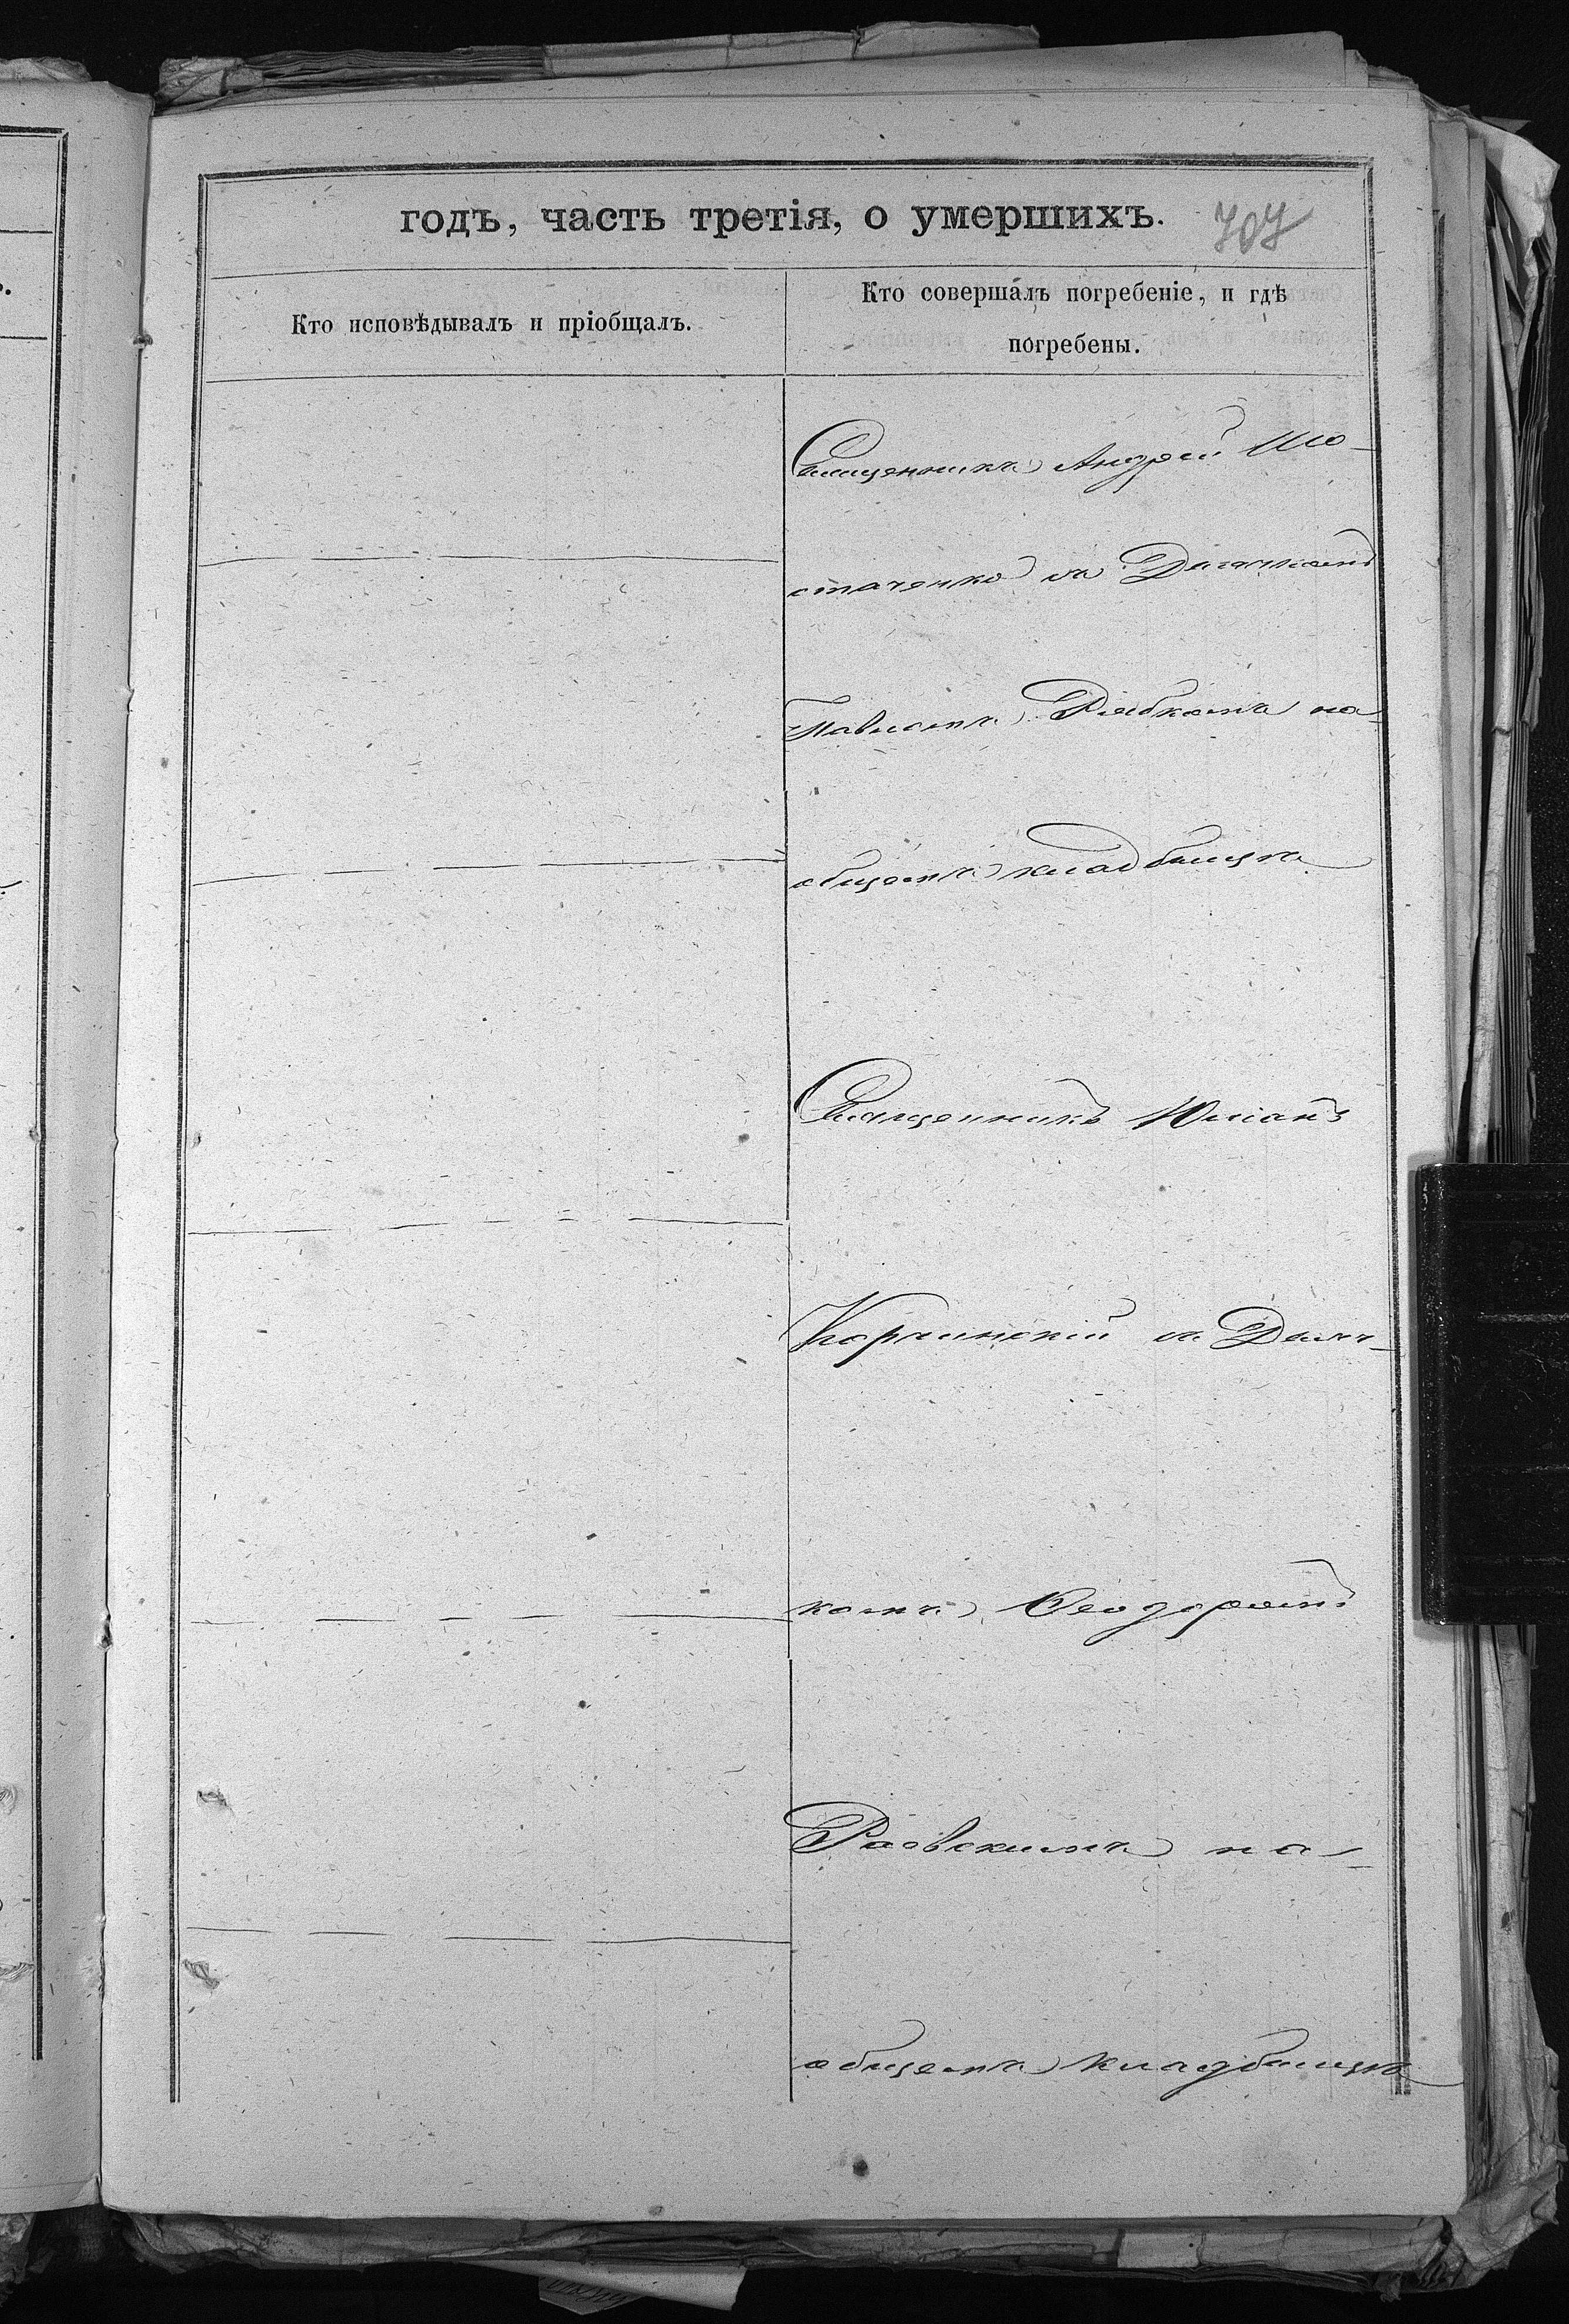 годъ, часть третія, о умершихъ.
707
Кто исповѣдывалъ и пріобщалъ.
Кто совершалъ погребеніе, и гдѣ
погребены.
Священникъ Андрей Шо-
стаченко съ Дьячкомъ
Павломъ Рябкомъ на
общемъ кладбищѣ
Священникъ Юліанъ
съ Дьяч-
комъ Ѳеодоромъ
Раевскимъ на
общемъ кладбищѣ